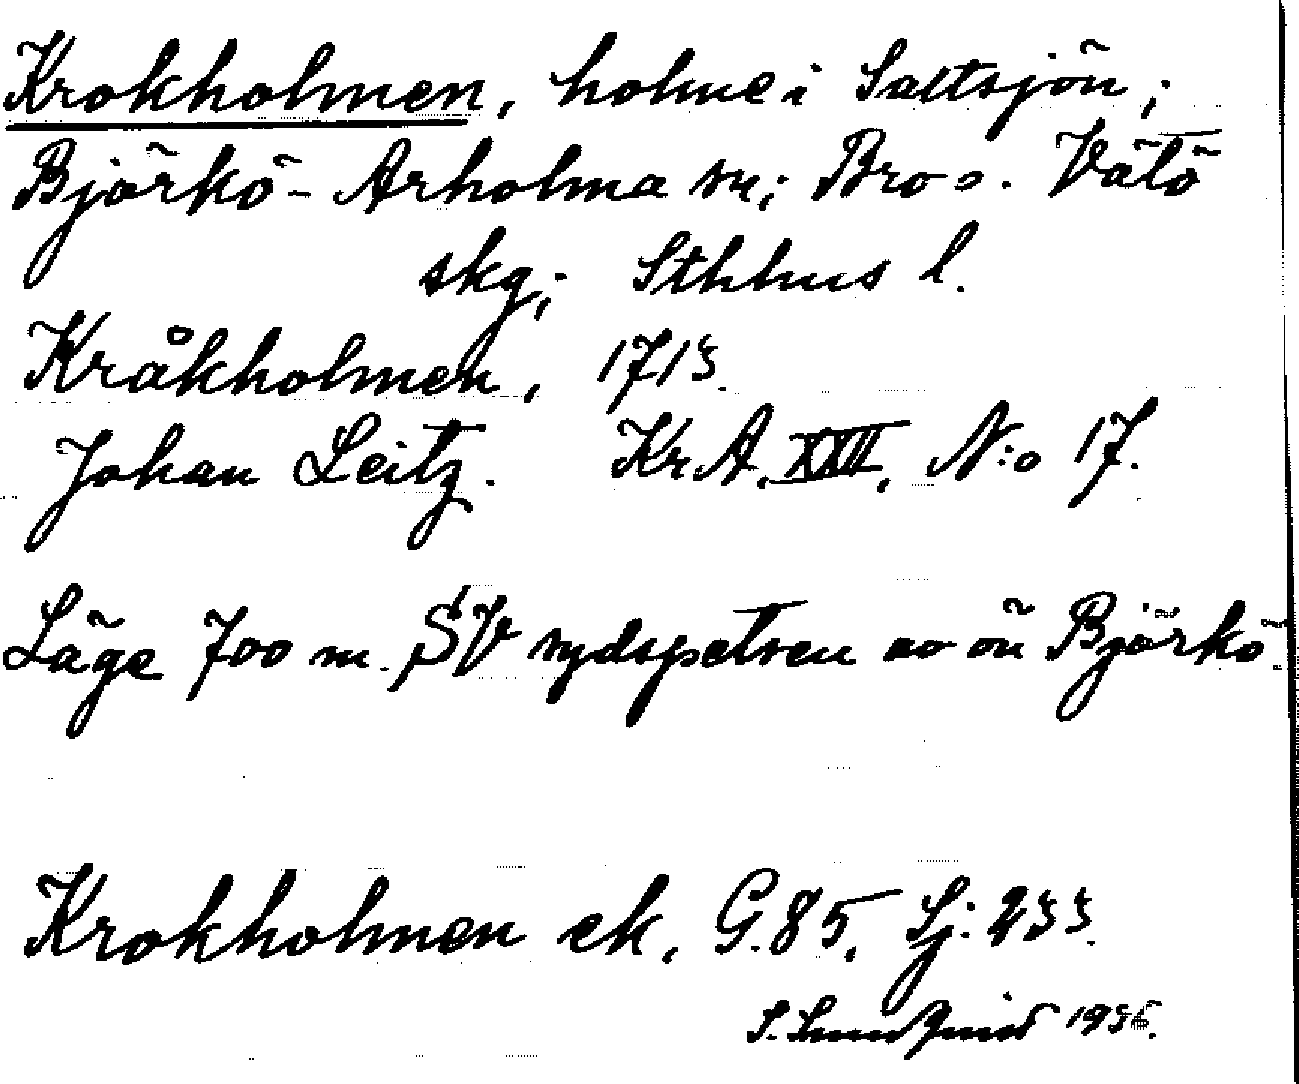 Krokholmen, holme i Saltsjön;
Björkö-Arholma sn; Bro o. Vätö
skg; Sthlms l.
Kråkholmen, 1713.
Johan Leitz. KrA. XXII, N:o 17.
Läge 700 m. SV sydspetsen av ön Björkö.
Krokholmen ek. G. 85, Sj: 233.
S. Lundquist 1936.